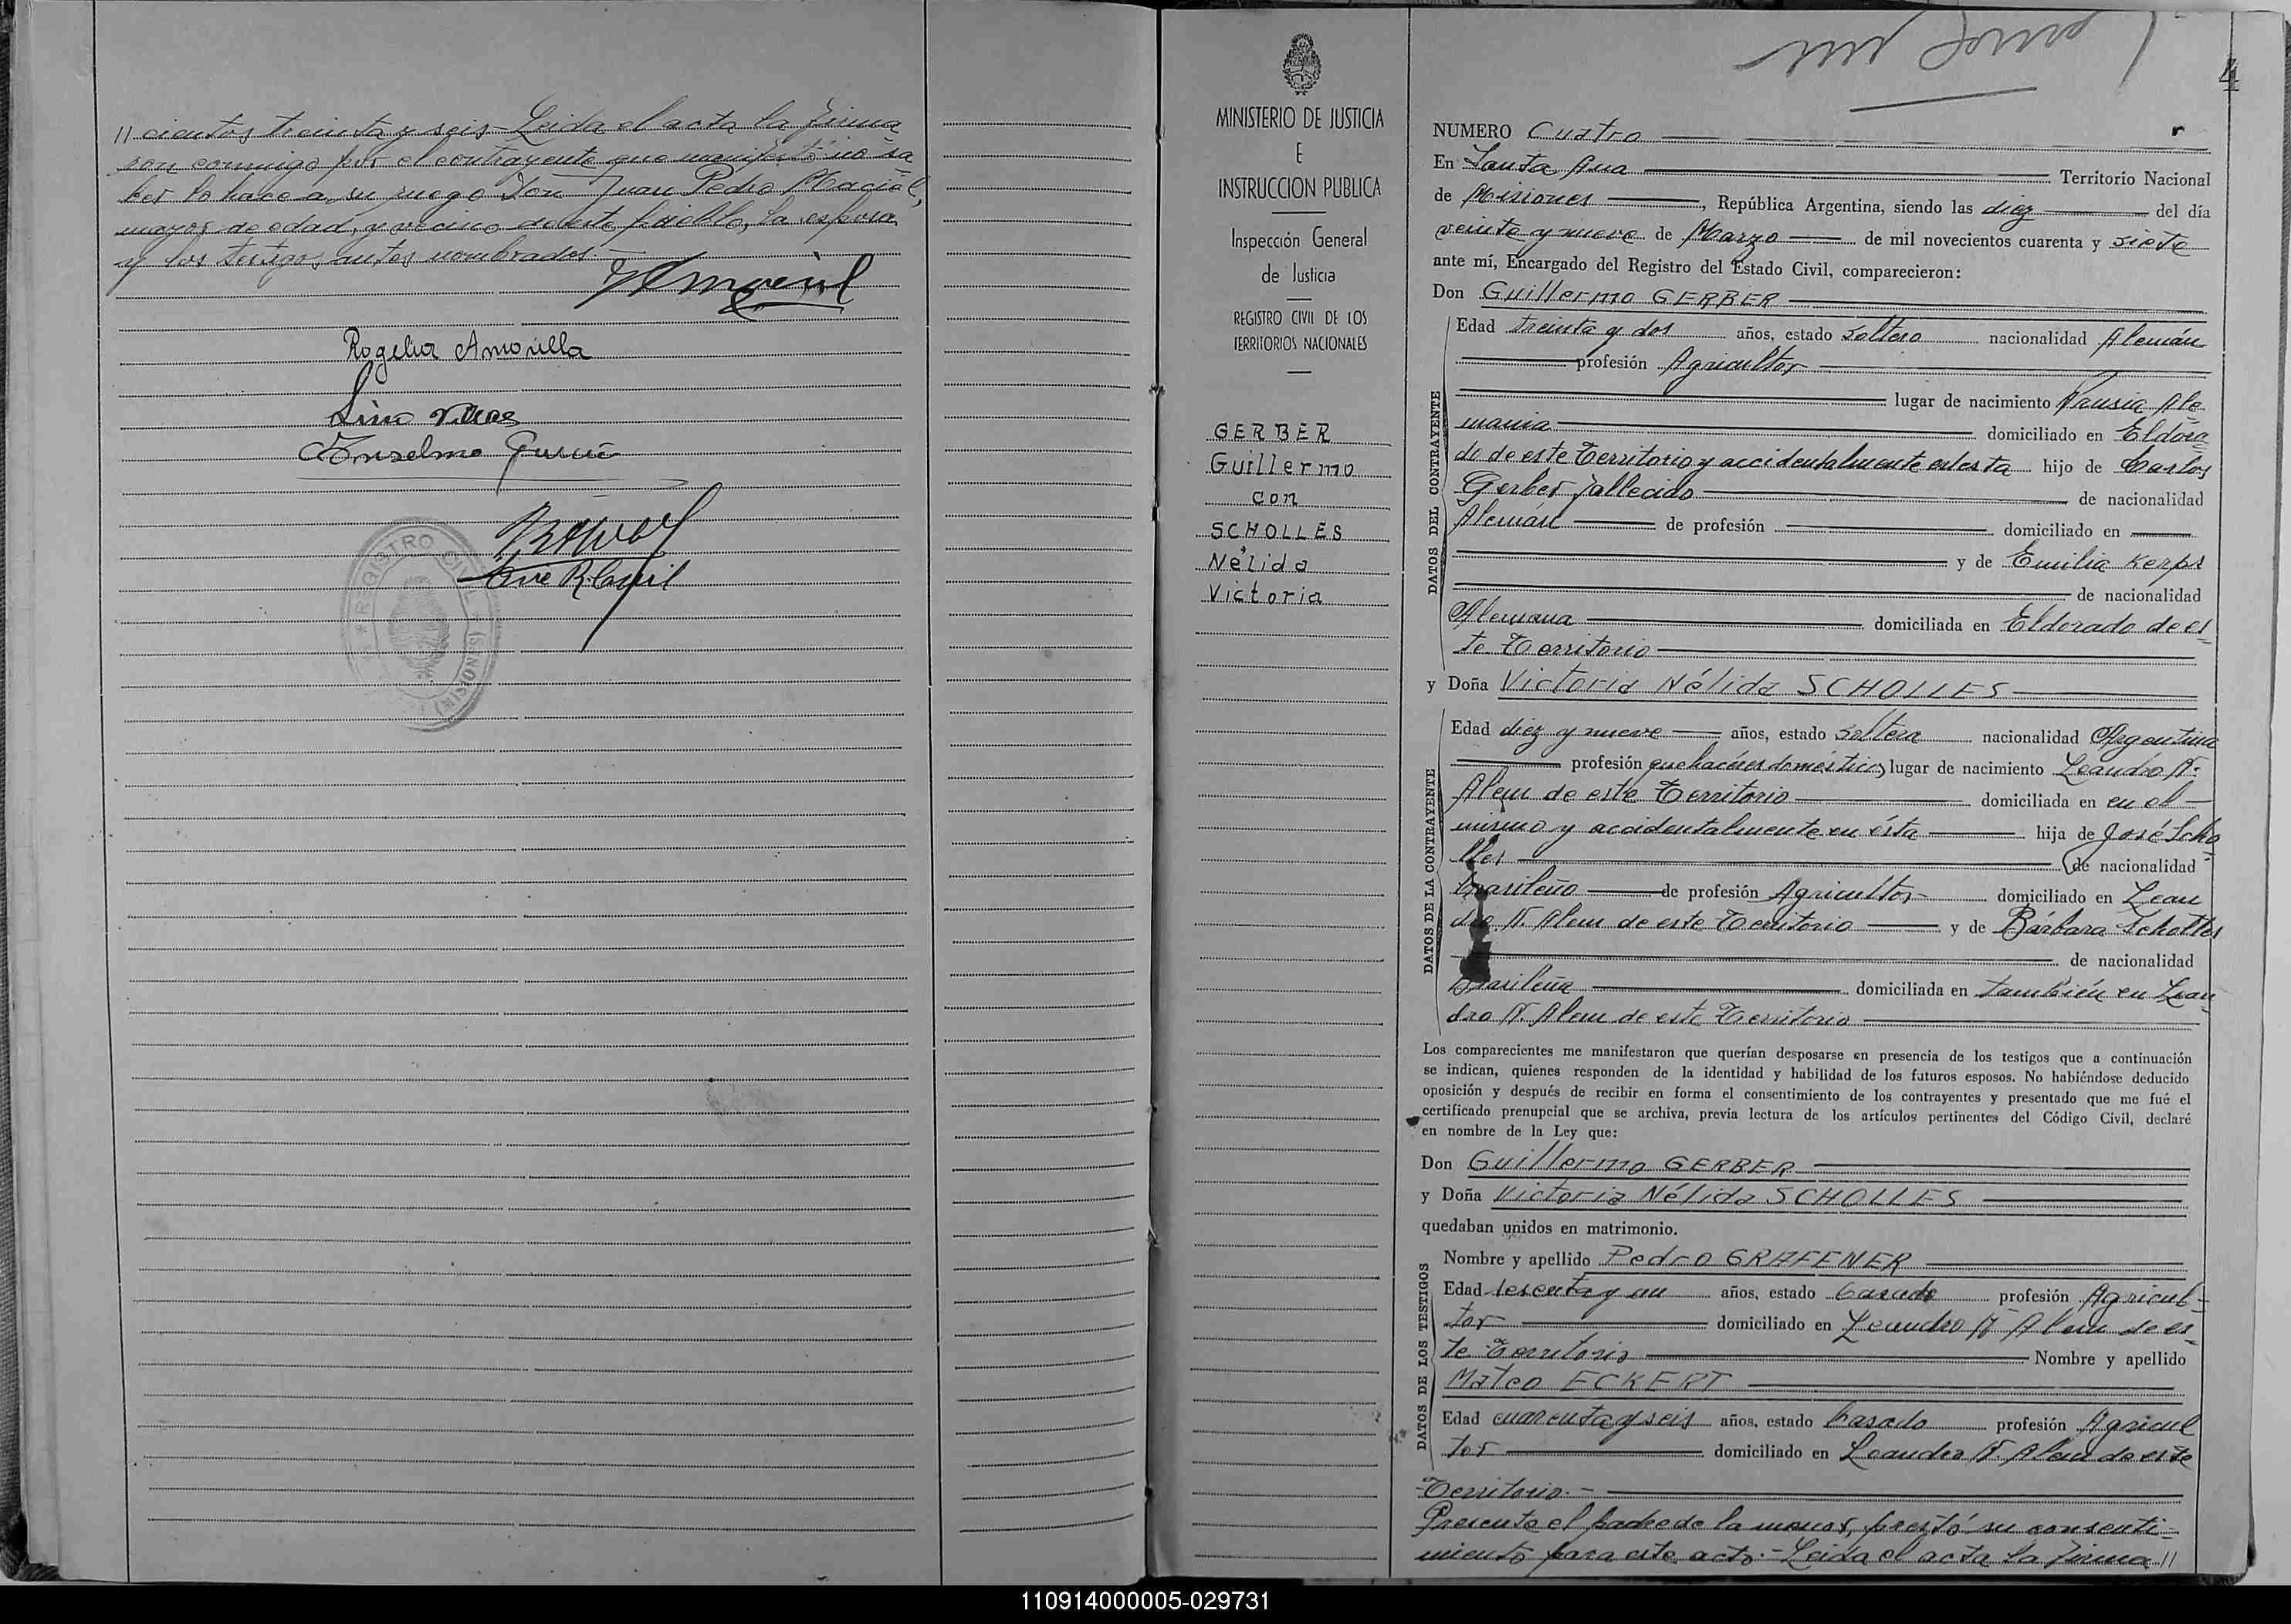 // cientos treinta y seis - Leida el acta la firma
ron conmigo por el contrayente que manifestó no sa
ber lo hace a su ruego Don Juan Pedro Maciel,
mayor de edad, y vecino de este pueblo, la esposa
y los testigos antes nombrados.
Rogelia Amorilla
Lino
Anselmo
REGISTRO CIVIL
(MISIONES)
4
MINISTERIO DE JUSTICIA
E
INSTRUCCION PUBLICA
Inspección General
de Justicia
REGISTRO CIVIL DE LOS
TERRITORIOS NACIONALES
GERBER
Guillermo
con
SCHOLLES
Nélida
Victoria
NUMERO Cuatro
En Santa Ana Territorio Nacional
de Misiones, República Argentina, siendo las diez del día
veinte y nueve de Marzo de mil novecientos cuarenta y siete
ante mí, Encargado del Registro del Estado Civil, comparecieron:
Don Guillermo GERBER
DATOS DEL CONTRAYENTE
Edad treinta y dos años, estado soltero nacionalidad Alemán
profesión Agricultor
lugar de nacimiento Prusia Ale
mania domiciliado en Eldora
do de este Territorio y accidentalmente en esta hijo de Carlos
Gerber fallecido de nacionalidad
Alemán de profesión domiciliado en
y de Emilia Kerps
de nacionalidad
Alemana domiciliada en Eldorado de es
te Territorio
y Doña Victoria Nélida SCHOLLES
DATOS DE LA CONTRAYENTE
Edad diez y nueve años, estado soltera nacionalidad Argentina
profesión quehaceres domésticos lugar de nacimiento Leandro N.
Alem de este Territorio domiciliada en en el
mismo y accidentalmente en ésta hija de José Scho
lles de nacionalidad
brasileño de profesión Agricultor domiciliado en Lean
dro N. Alem de este Territorio y de Bárbara Scholles
de nacionalidad
Brasileña domiciliada en también en Lean
dro N. Alem de este Territorio
Los comparecientes me manifestaron que querían desposarse en presencia de los testigos que a continuación
se indican, quienes responden de la identidad y habilidad de los futuros esposos. No habiéndose deducido
oposición y después de recibir en forma el consentimiento de los contrayentes y presentado que me fué el
certificado prenupcial que se archiva, previa lectura de los artículos pertinentes del Código Civil, declaré
en nombre de la Ley que:
Don Guillermo GERBER
y Doña Victoria Nélida SCHOLLES
quedaban unidos en matrimonio.
DATOS DE LOS TESTIGOS
Nombre y apellido Pedro GRAFENER
Edad sesenta y un años, estado Casado profesión Agricul-
tor domiciliado en Leandro N. Alem de es
te Territorio Nombre y apellido
Mateo ECKERT
Edad cuarenta y seis años, estado Casado profesión Agricul
tor domiciliado en Leandro N. Alem de este
Territorio.-
Presente el padre de la menor, prestó su consenti-
miento para este acto.- Leida el acta la firma //
110914000005-029731